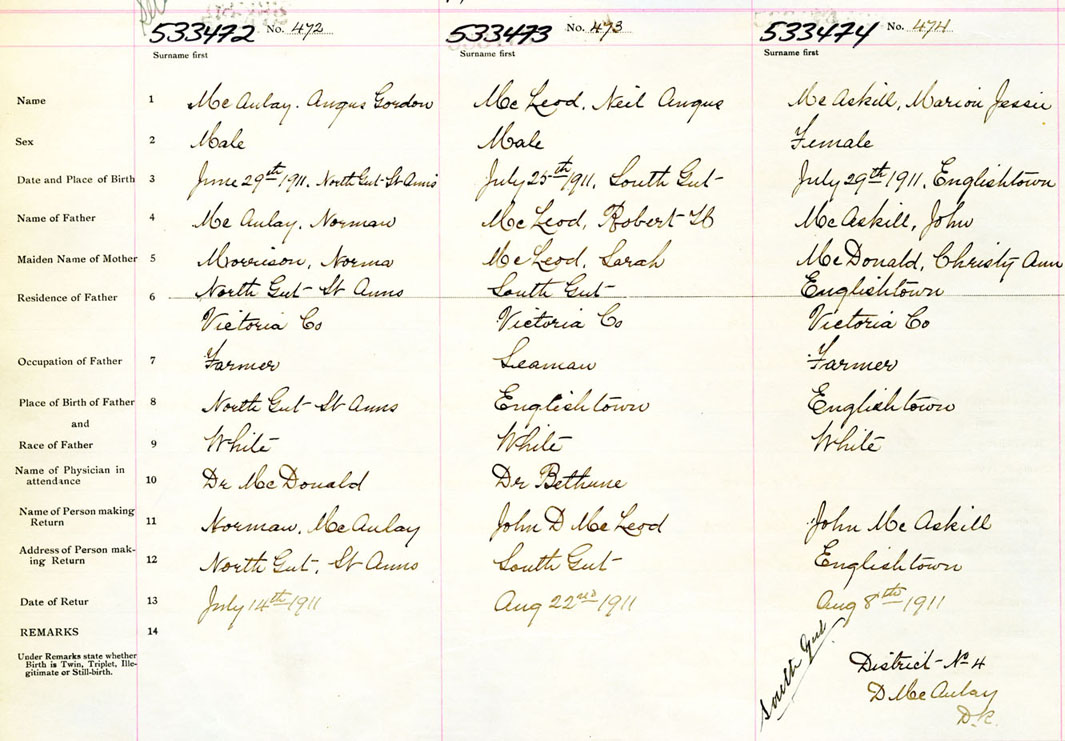 533472 No. 472 533473 No. 473 533474 No. 474
Surname first Surname first Surname first
Name 1 McAulay. Angus Gordon McLeod, Neil Angus McAskill, Marion Jessie
Sex 2 Male Male Female
Date and Place of Birth 3 June 29th 1911. North Gut St Anns July 25th 1911, South Gut July 29th 1911, Englishtown
Name of Father 4 McAulay, Norman McLeod, Robert McAskill, John
Maiden Name of Mother 5 Morrison, Norma McLeod, Sarah McDonald, Christy Ann
Residence of Father 6 North Gut St Anns South Gut Englishtown
Victoria Co Victoria Co Victoria Co
Occupation of Father 7 Farmer Seaman Farmer
Place of Birth of Father 8 North Gut St Anns Englishtown Englishtown
and
Race of Father 9 White White White
Name of Physician in
attendance 10 Dr McDonald Dr Bethune
Name of Person making
Return 11 Norman, McAulay John D McLeod John McAskill
Address of Person mak-
ing Return 12 North Gut, St Anns South Gut Englishtown
Date of Retur 13 July 14th 1911 Aug 22nd 1911 Aug 8th 1911
REMARKS 14
Under Remarks state whether
Birth is Twin, Triplet, Ille-
gitimate or Still-birth.
South Gut
District No 4
D McAulay
D.R.